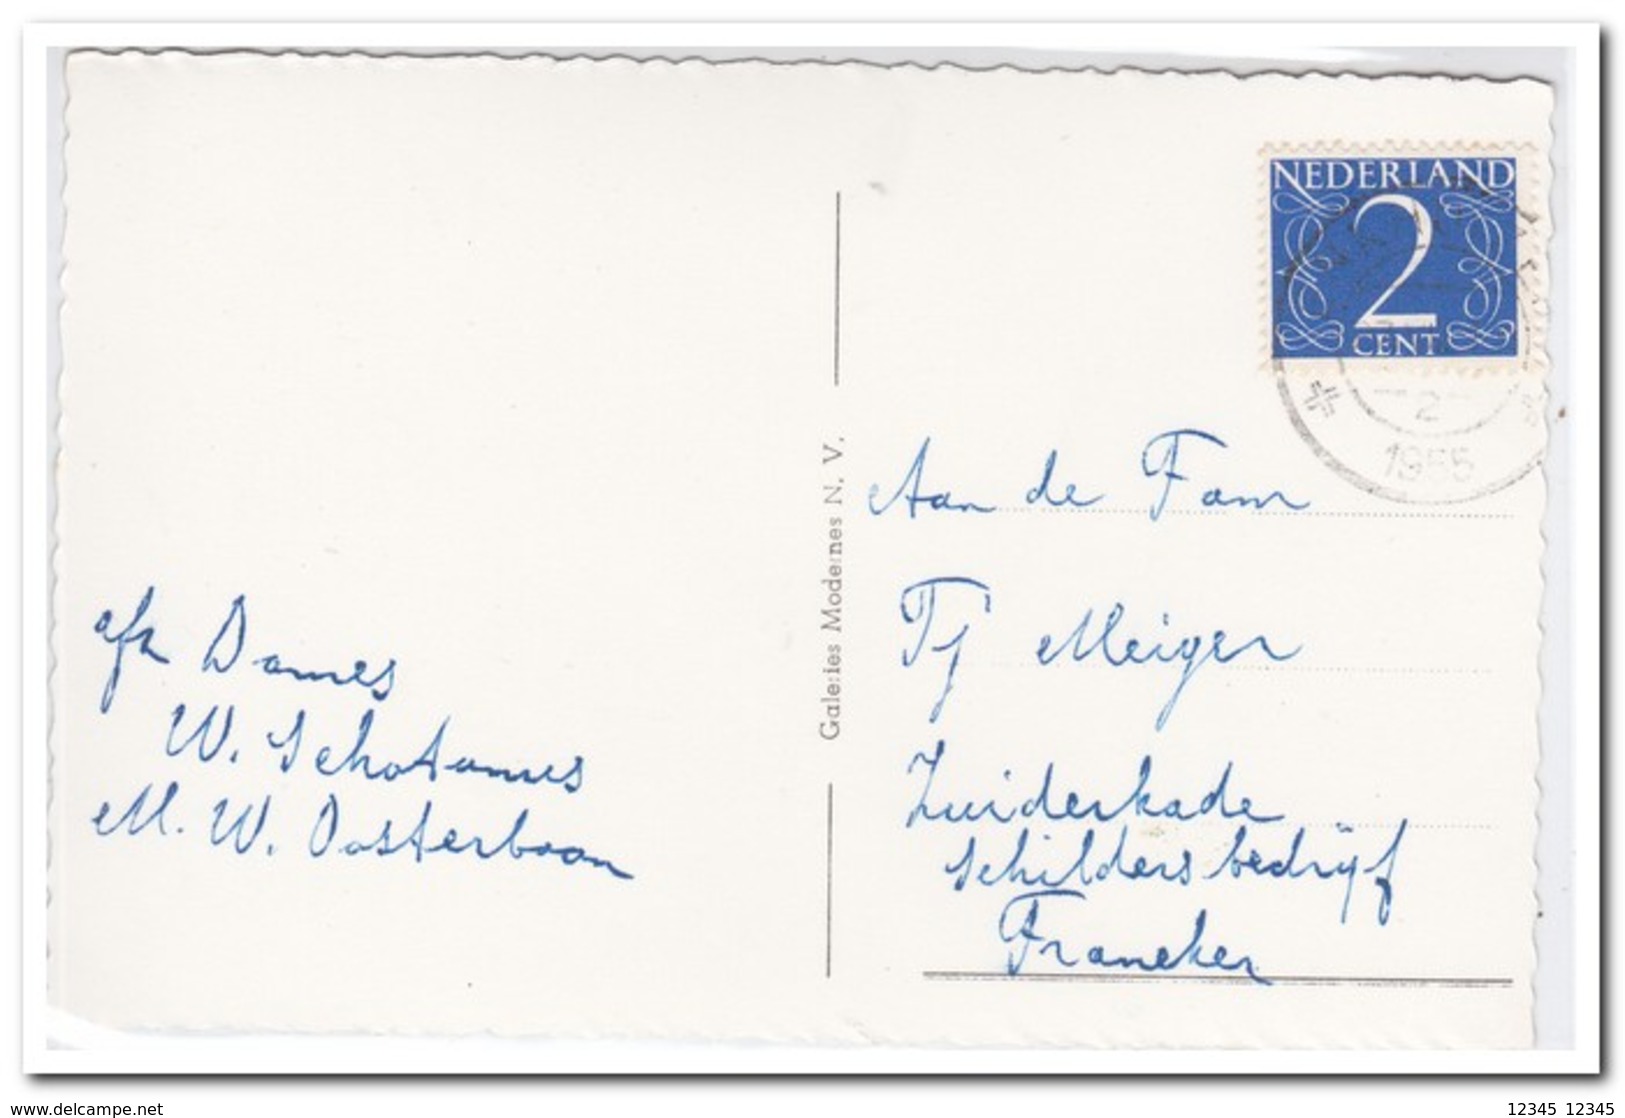 NEDERLAND
2
CENT
2
1955
Galeries Modernes N. V.
Aan de Fam
Tj Meiger
Zuiderkade
schildersbedrijf
Franeker
afz Dames
W. Schotanus
M. W. Oosterbaan
www.delcampe.net
12345 12345